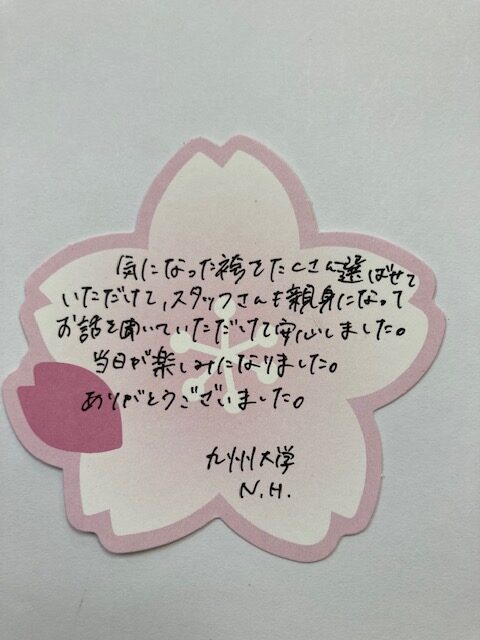 気になった袴をたくさん選ばせて
いただけて、スタッフさんも親身になって
お話を聞いていただけて安心しました。
当日が楽しみになりました。
ありがとうございました。
九州大学
N.H.